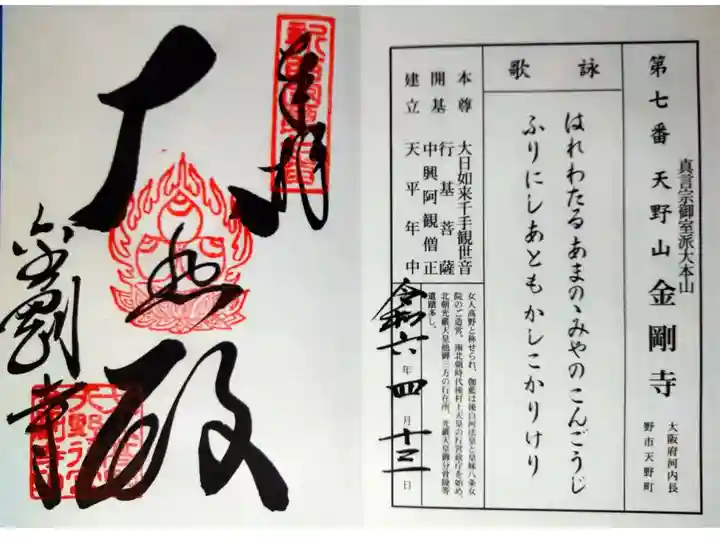 第七番 天野山 金剛寺
真言宗御室派大本山
大阪府河内長
野市天野町
詠歌
はれわたるあまのゝみやのこんごうじ
ふりにしあともかしこかりけり
本尊 大日如来千手観世音
開基 行基菩薩
中興阿観僧正
建立 天平年中
女人高野と称せられ、伽藍は後白河法皇と皇妹八条女
院のご造営。南北朝時代後村上天皇の行宮政庁を始め、
北朝光厳天皇他御三方の行在所、光厳天皇御分骨陵等
遺蹟多し。
令和六年四月十三日
奉拝
大悲殿
金剛寺